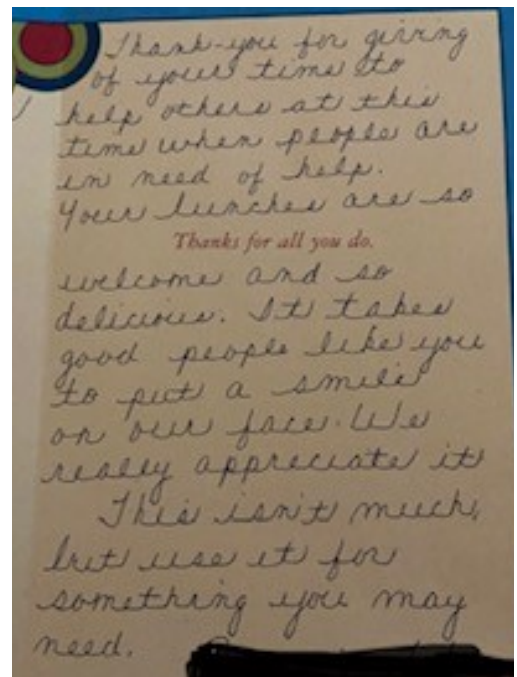 Thank-you for giving
of your time to
help others at this
time when people are
in need of help.
Your lunches are so
Thanks for all you do.
welcome and so
delicious. It takes
good people like you
to put a smile
on our face. We
really appreciate it
This isn't much,
but use it for
something you may
need.